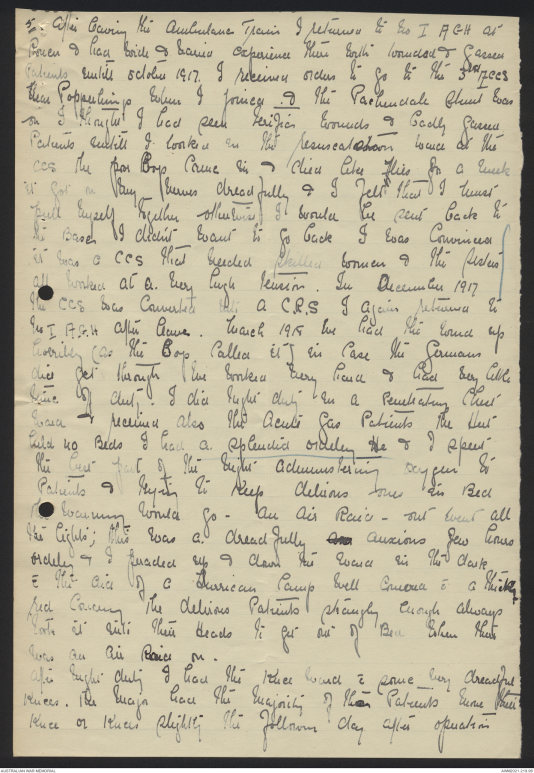 5. After leaving the Ambulance Train I returned to No I AGH at
Rouen & had wide & varied experience there both wounded & Gassed
Patients until october 1917. I received orders to go to the 3rd ACCS
near Popperhinge when I joined & the Pachendale stunt was
on I thought I had seen terrific wounds & badly Gassed
Patients until I worked in the resuscitation ward at the
CCS the poor Boys came in & died like flies for a week
it got on my nerves dreadfully & I felt that I must
pull myself together otherwise I would be sent back to
the Base. I didn't want to go back I was convinced
it was a CCS that needed skilled women & the sisters
all worked at a very high tension. In December 1917
the CCS was converted into a C.R.S I again returned to
No I A.G.H after leave. March 1918 we had the wind up
horribly (as the Boys called it) in case the Germans
did get through we worked very hard & had very little
time off duty. I did night duty in a Penetrating Chest
Ward & received also the Acute Gas Patients the tent
held 40 Beds I had a splendid orderly He & I spent
the best part of the night administering oxygen to
Patients & trying to keep delirious ones in Bed
the warning would go - an Air Raid - out went all
the lights; this was a dreadfully anxious few hours
orderly & I paraded up & down the ward in the dark
c the aid of a Hurrican Lamp well covered c a thick
red covering the delirious Patients strangly enough always
took it into their Heads to get out of Bed when there
was an Air Raid on.
After night duty I had the Knee ward c some very dreadful
Knees. The Major had the majority of the Patients move their
Knee or Knees slightly the following day after operation
AUSTRALIAN WAR MEMORIAL